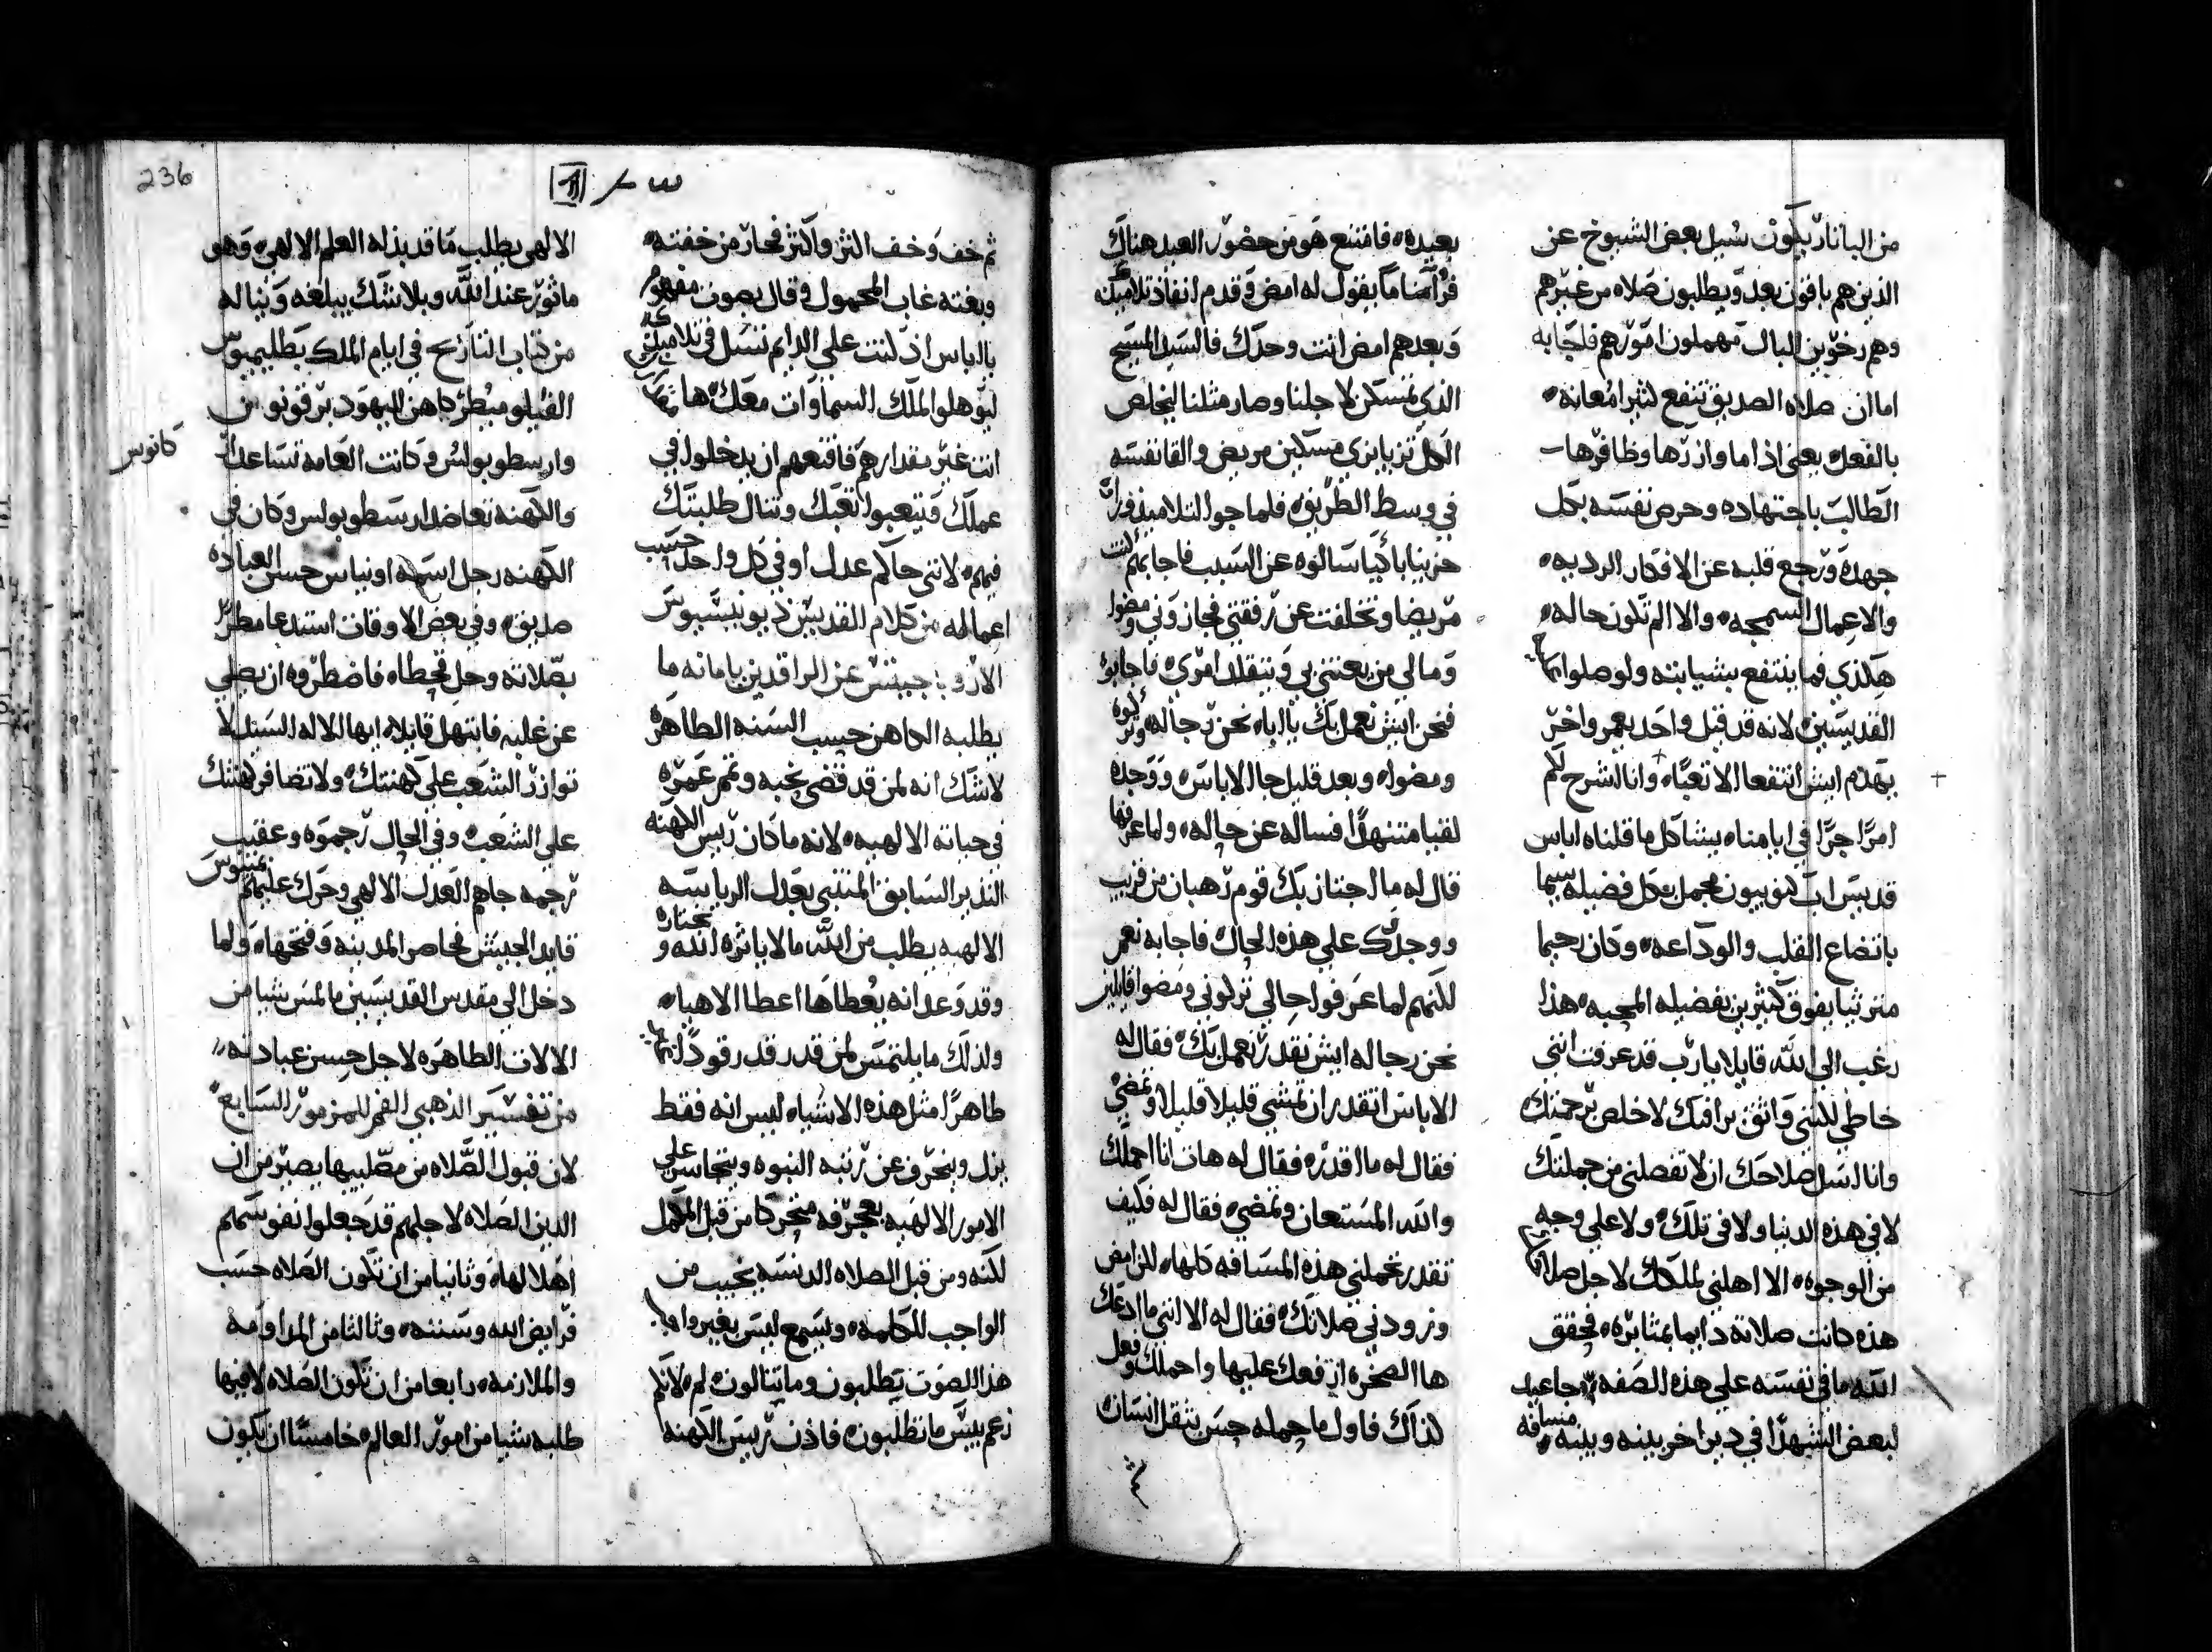 من الباناريكون سيل بعض الشيوخ عن
الذين هم باقون بعد ويطلبون صلاه من غيرهم
وهم رخوين البال مهملون امورهم فاجابه
اما ان صلاه الصديق تنفع لثيرا معانه
بالفعل يعني اذا ما وازرها وظافرها
الطالب باجتهاده وحرص نفسه بكل
جهده ورجع قلبه عن الافكار الرديه
والاعمال السمجه والا الم تكون حاله
هكذي فما ينتفع بشيابته ولو صلوا
القديسين لانه قد قيل واحد يعمر واخر
يهدم ايش انتفعا الا تعبًا وانا اشرح لكم
امرًا جرًا في ايامنا يشاكل ما قلناه اباس
قديس اب كنوبيون مجمل بكل فضيله سيما
باتضاع القلب والوداعه وكان رحيما
مترثيا يفوق كثيرين بفضيله المحبه هذا
رغب الي الله قايلا يا رب قد عرفت انني
خاطي لكنني واثق برافتك لاخلص برحمتك
وانا اسل صلاحك ان لا تفصلني من جملتك
لا في هذه الدنيا ولا في تلك ولا علي وجه
من الوجوه الا اهلني لملكك لاجل صلاحك
هذه كانت صلاته دايما بمثابره فحقق
الله ما في نفسه علي هذه الصفه جا عيد
لبعض الشهدا في دير اخر بينه وبينه مسافه
بعيده فامتنع هو من حضور العيد هناك
فرآ مناما يقول له امض وقدم انفاذ تلاميذك
وبعدهم امض انت وحدك فالسيد المسيح
الذي تمسكن لاجلنا وصار مثلنا ليخلص
الكل تزيا بزي مسكين مريض والقا نفسه
في وسط الطريق فلما جوا التلاميذ وراوه
حزينا باكيا سالوه عن السبب فاجابهم كنت
مريضا وتخلفت عن رفقتي فجازوني ومضوا
وما لي من يعتني بي ويتقلد امري فاجابوه
فنحن ايش نعمل بك يا ابا نحن رجاله وتركوه
ومضوا وبعد قليل جا الاباس ووجده
لقيا متنهدًا فساله عن حاله ولما عرفها
قال له ما اجتاز بك قوم رهبان من قريب
ووجدك علي هذه الحال فاجابه نعم
لكنهم لما عرفوا حالي تركوني ومضوا قايلين
نحن رجاله ايش نقدر نعمل بك فقال له
الاباس اتقدر ان تمشي قليلا قليلا وتمضي
فقال له ما اقدر فقال له هات انا احملك
والله المستعان ونمضي فقال له فكيف
تقدر تحملني هذه المسافه كلها لكن امض
وزودني صلاتك فقال له الا انني ما ادعك
ها الصخره ارفعك عليها واحملك وفعل
كذاك فاول ما حمله حس بثقل انسان
236
ثم خف وخف اكثر واكثر فحار من خفته
وبغته غاب المحمول وقال بصوت مفهوم
يا الياس اذ كنت علي الدايم تسل في تلاميذك
ليوهلوا لملك السماوات معك ها
انت غير مقدارهم فاقنعهم ان يدخلوا في
عملك ويتعبوا تعبك وتنال طلبتك
فيهم لانني حاكم عدل اوفي كل واحد حسب
اعماله من كلام القديس ذيونيسيوس
الاريوباجيتس عن الراقدين بامانه ما
يطلبه الكاهن حسب السنه الطاهره
لاشك انه لمن قد قضي نحبه وتم عمره
في حياته الالهيه لانه ما كان ريس الكهنه
النذير السابق المنتبي بعدل الرياسه
الالهيه يطلب من الله ما لا ياثره الله و يختاره
وقد وعد انه يعطاها اعطا الاهيا
ولذلك ما يلتمس لمن قدر قد رقودًا
طاهرًا مثل هذه الاشياء ليس انه فقط
يزل وينحرف عن رتبه النبوه ويتجاسر علي
الامور الالهيه بعجرفه متحركا من قبل المكمل
لكنه ومن قبل الصلاه الدنسه يخيب من
الواجب للكلمه ويسمع ليس بغير واجب
هذا الصوت تطلبون وما تنالون لم لانكم
زعم بيس ما تطلبون فاذن ريس الكهنه
الالهي يطلب ما قد بذله العلم الالهي وهو
ماثور عند الله وبلا شك يبلغه ويناله
من كتاب التاريخ في ايام الملك بطليميوس
الفيلوميطر كاهن اليهود برقونو
وارسطوبولس وكانت العامه تساعد
والكهنه تعاضد ارسطوبولس وكان في
كانوس
الكهنه رجل اسمه اونياس حسن العباده
صديق وفي بعض الاوقات استدعا مطر
بصلاته وحل قحطا فاضطروه ان يصلي
عن غلبه فابتهل قايلا ايها الاله السيد لا
توازر الشعب علي كهنتك ولا تضافر كهنتك
علي الشعب وفي الحال رجموه وعقيب
رجمه جاهم العدل الالهي وحرك عليهم
قايد الجيش فحاصر المدينه وفتحها ولما
دخل الي مقدس القديسين ما لمس شيا من
الالات الطاهره لاجل حسن عبادته
من تفسير الذهبي الفم للمزمور السابع
لان قبول الصلاه من مصليها يصير من ان
الدين الصلاه لاجلهم قد جعلوا نفوسهم
اهلا لها وثانيا من ان تكون الصلاه حسب
فرايض الله وسننه وثالثا من المداومه
والملازمه رابعا من ان تكون الصلاه لا فيها
طلبه شيا من امور العالم خامسًا ان يكون